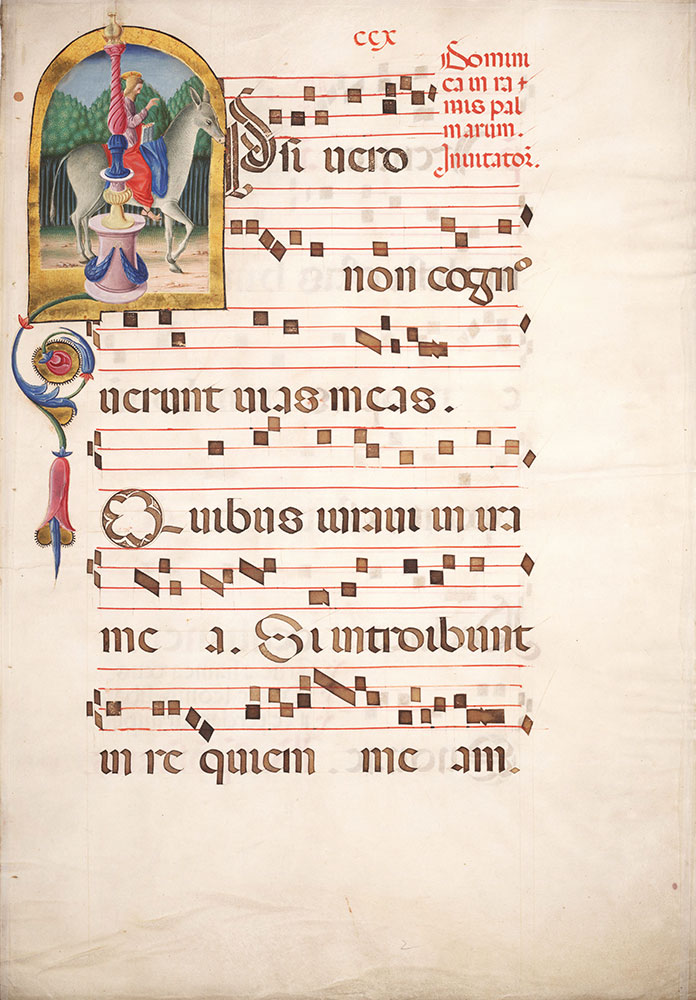 CCX
Domini
ca in ra
mis pal
marum.
Inuitator.
Ipsi uero
non cogno
uerunt uias meas.
Quibus iuraui in ira
me a. Si introibunt
in re quiem me am.